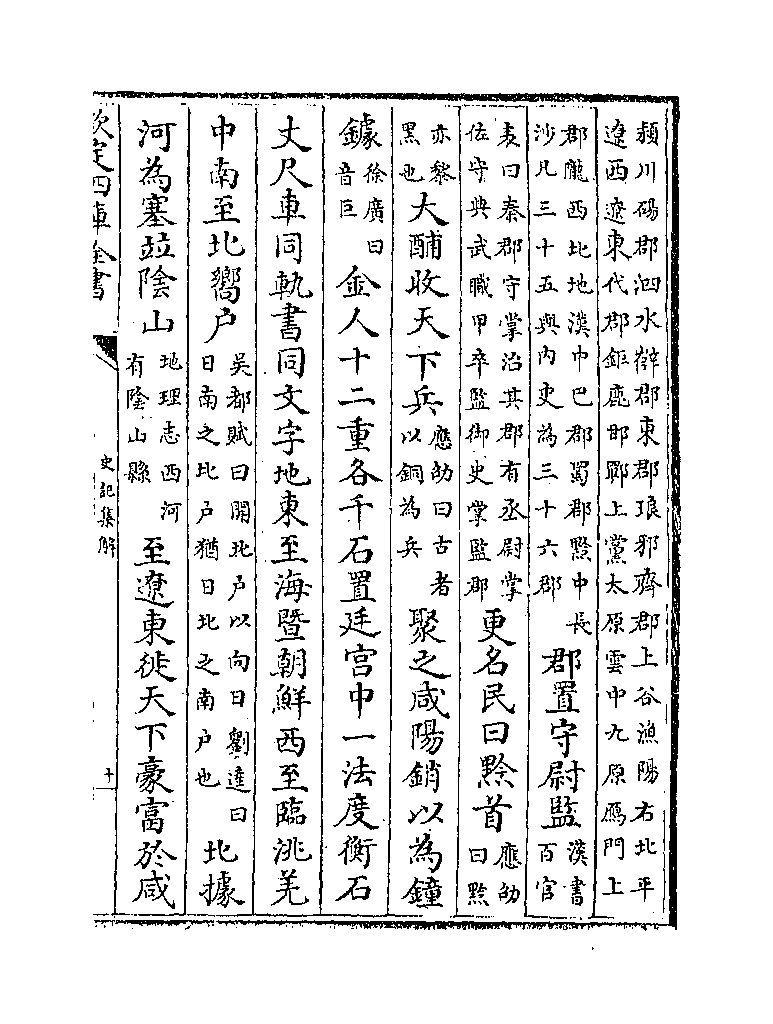 潁川碭郡泗水薛郡東郡琅邪齊郡上谷漁陽右北平
遼西遼東代郡鉅鹿邯鄲上黨太原雲中九原鴈門上
郡隴西北地漢中巴郡蜀郡黔中長
沙凡三十五與內史為三十六郡
郡置守尉監
漢書
百官
表曰秦郡守掌治其郡有丞尉掌
佐守典武職甲卒監御史掌監郡
更名民曰黔首
應劭
曰黔
亦黎
黑也
大酺收天下兵
應劭曰古者
以銅為兵
聚之咸陽銷以為鐘
鐻
徐廣曰
音巨
金人十二重各千石置廷宮中一法度衡石
丈尺車同軌書同文字地東至海暨朝鮮西至臨洮羌
中南至北嚮户
吳都賦曰開北户以向日劉逵曰
日南之北户猶日北之南户也
北據
河為塞竝陰山
地理志西河
有陰山縣
至遼東徙天下豪富於咸
欽定四庫全書
史記集解
十